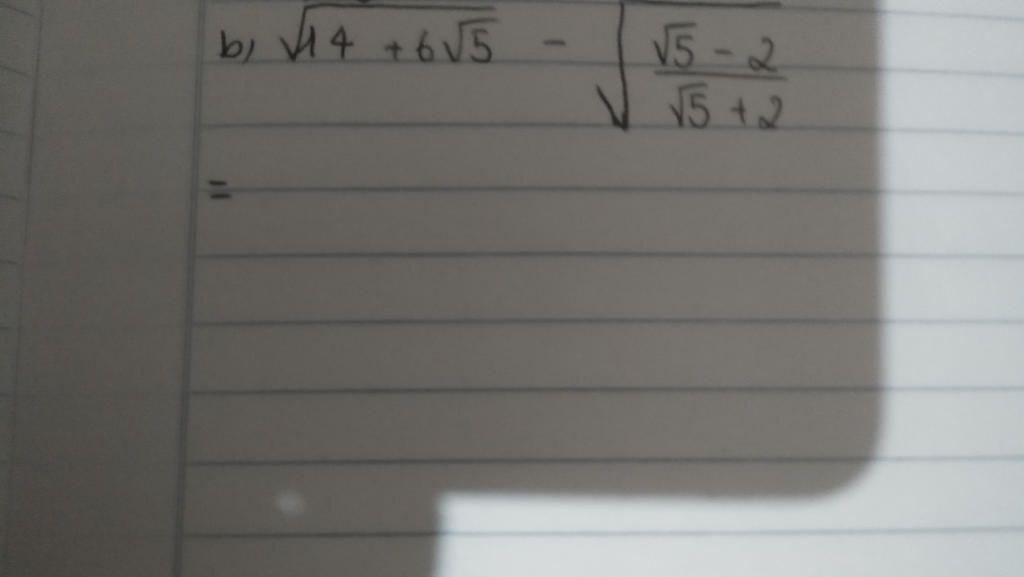 b) √(14 + 6√5) - √((√5 - 2)/(√5 + 2))
=